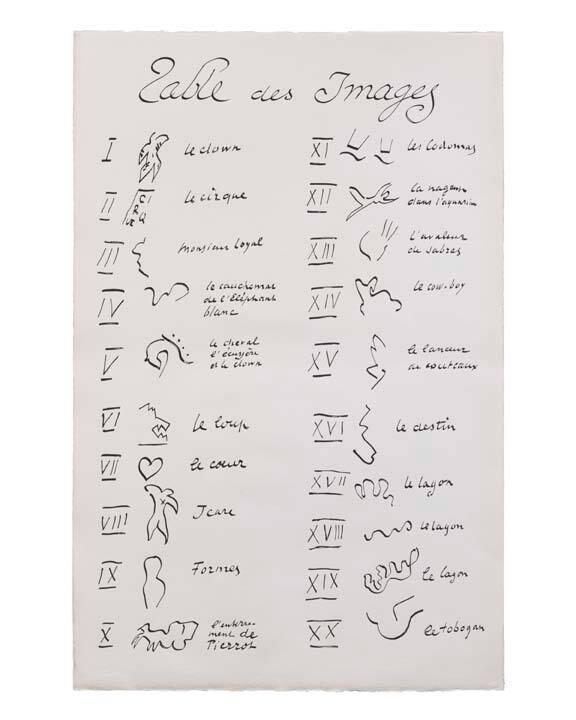 Table des Images
I le clown
II le cirque
CI
R
Q
UE
III monsieur loyal
IV le cauchemar
de l'Eléphant
blanc
V le cheval
l'écuyère
et le clown
VI Le loup
VII le coeur
VIII Icare
IX Formes
X l'enterre-
ment de
Pierrot
XI les Codomas
XII la nageuse
dans l'aquarium
XIII l'avaleur
de sabres
XIV le cow-boy
XV le lanceur
de couteaux
XVI le destin
XVII le lagon
XVIII le lagon
XIX le lagon
XX le tobogan